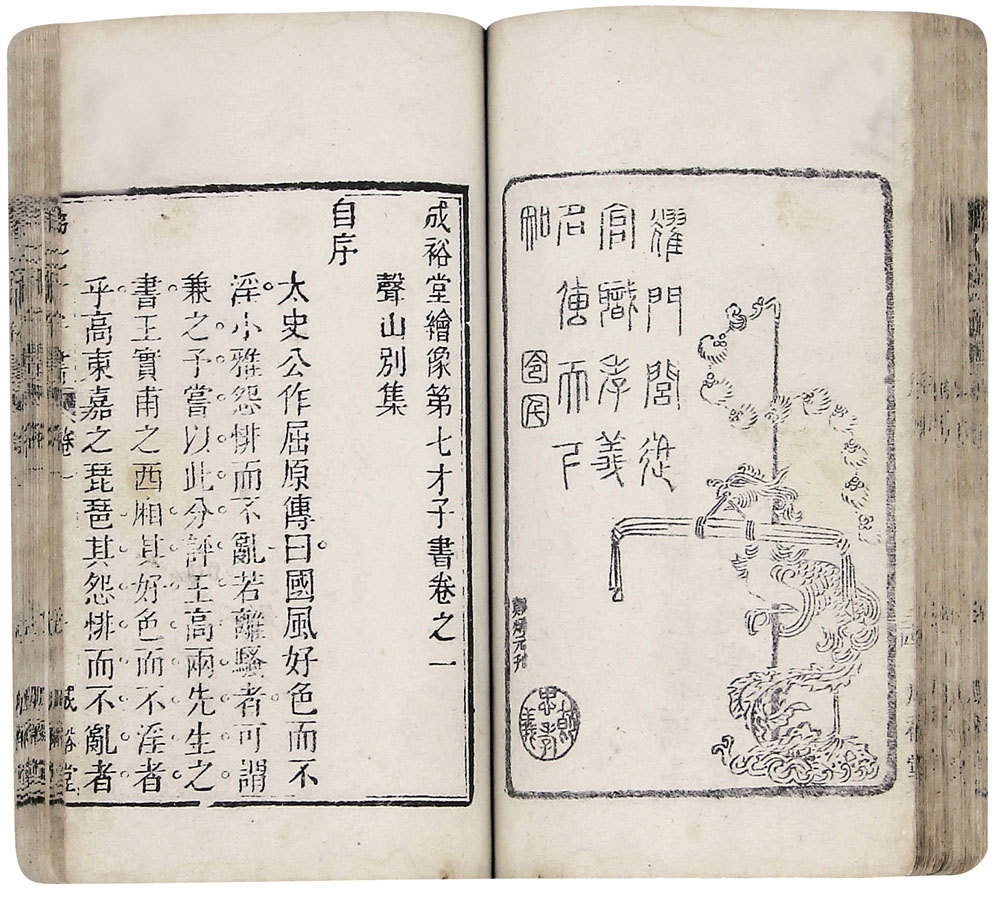 耀門閭進
官職孝義
名傳天下
知
忠孝節義
成裕堂繪像第七才子書卷之一
聲山別集
自序
太史公作屈原傳曰國風好色而不
淫小雅怨悱而不亂若離騷者可謂
兼之予嘗以此分評王高兩先生之
書王實甫之西廂其好色而不淫者
乎高東嘉之琵琶其怨悱而不亂者
卷一
成裕堂